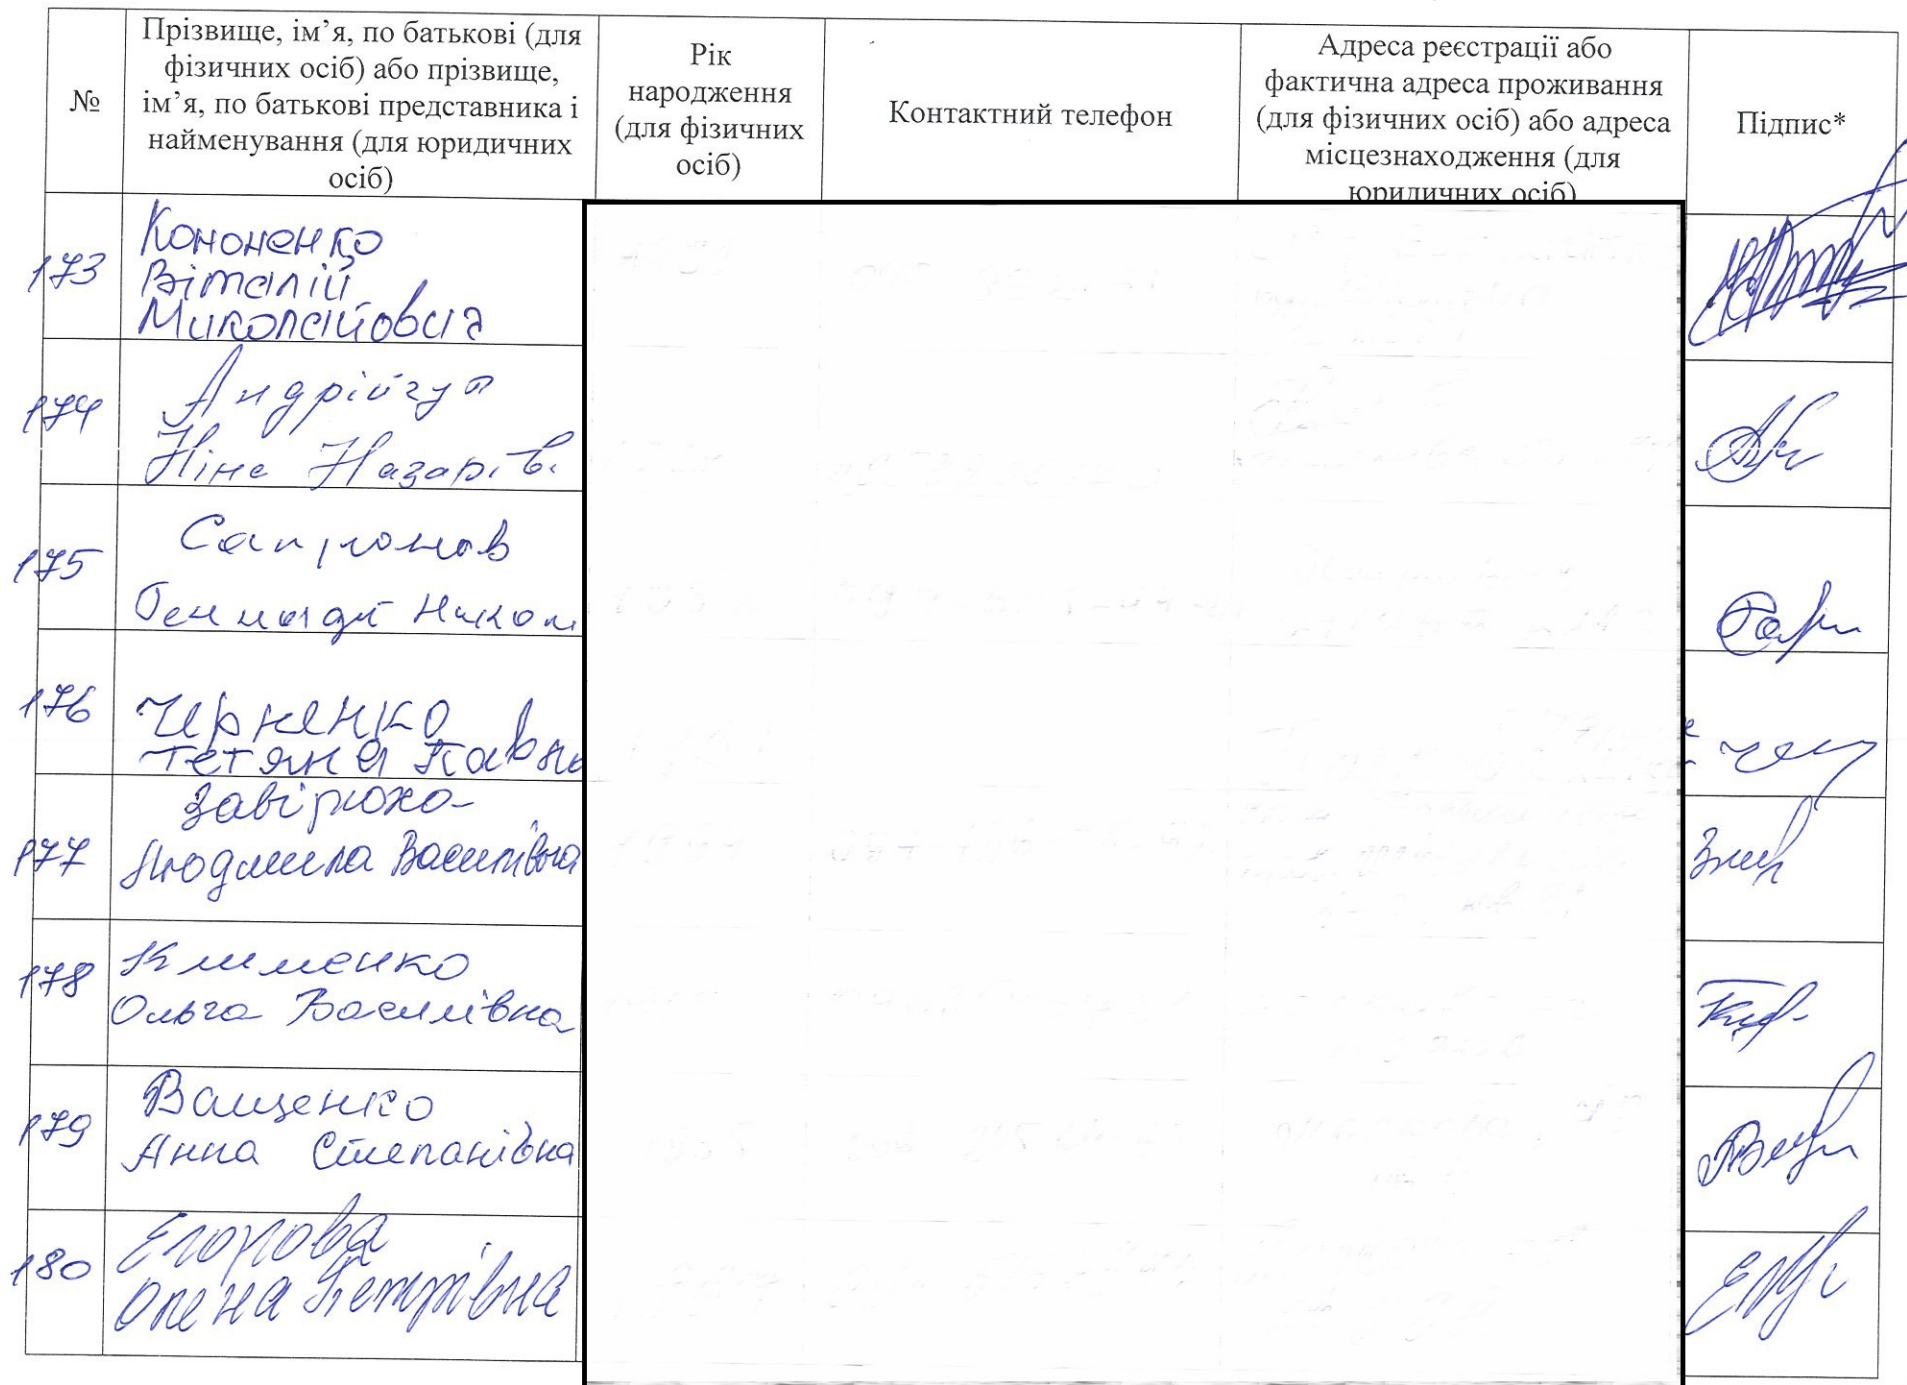 №
Прізвище, ім’я, по батькові (для
фізичних осіб) або прізвище,
ім’я, по батькові представника і
найменування (для юридичних
осіб)
Рік
народження
(для фізичних
осіб)
Контактний телефон
Адреса реєстрації або
фактична адреса проживання
(для фізичних осіб) або адреса
місцезнаходження (для
юридичних осіб)
Підпис*
173
Кононенко
Віталій
Миколайович
174
Андрійчук
Ніна Назарів.
175
Сапронов
Геннадій Никол
176
Черненко
Тетяна Павлів
177
Завірюхо
Людмила Василівна
178
Клименко
Ольга Василівна
179
Ващенко
Анна Степанівна
180
Егорова
Олена Петрівна